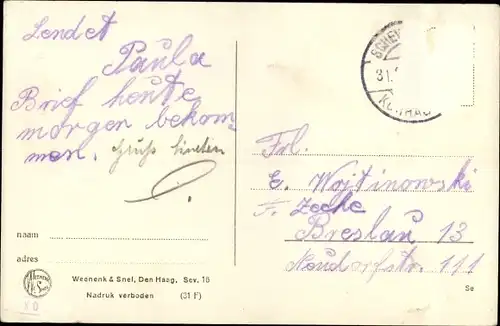 Sendet
Paula
Brief heute
morgen bekom-
men. Gruß
naam
adres
Weenenk & Snel, Den Haag, Sev. 18
Nadruk verboden (31 F)
SCHEV
31.
Frl.
E. Wojtinowski
F. Zeche
Breslau 13
Neudorfstr. 111
Se